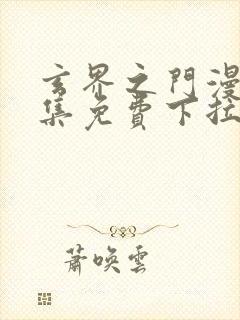 玄界之門漫
集免費下拉
蕭喚雲